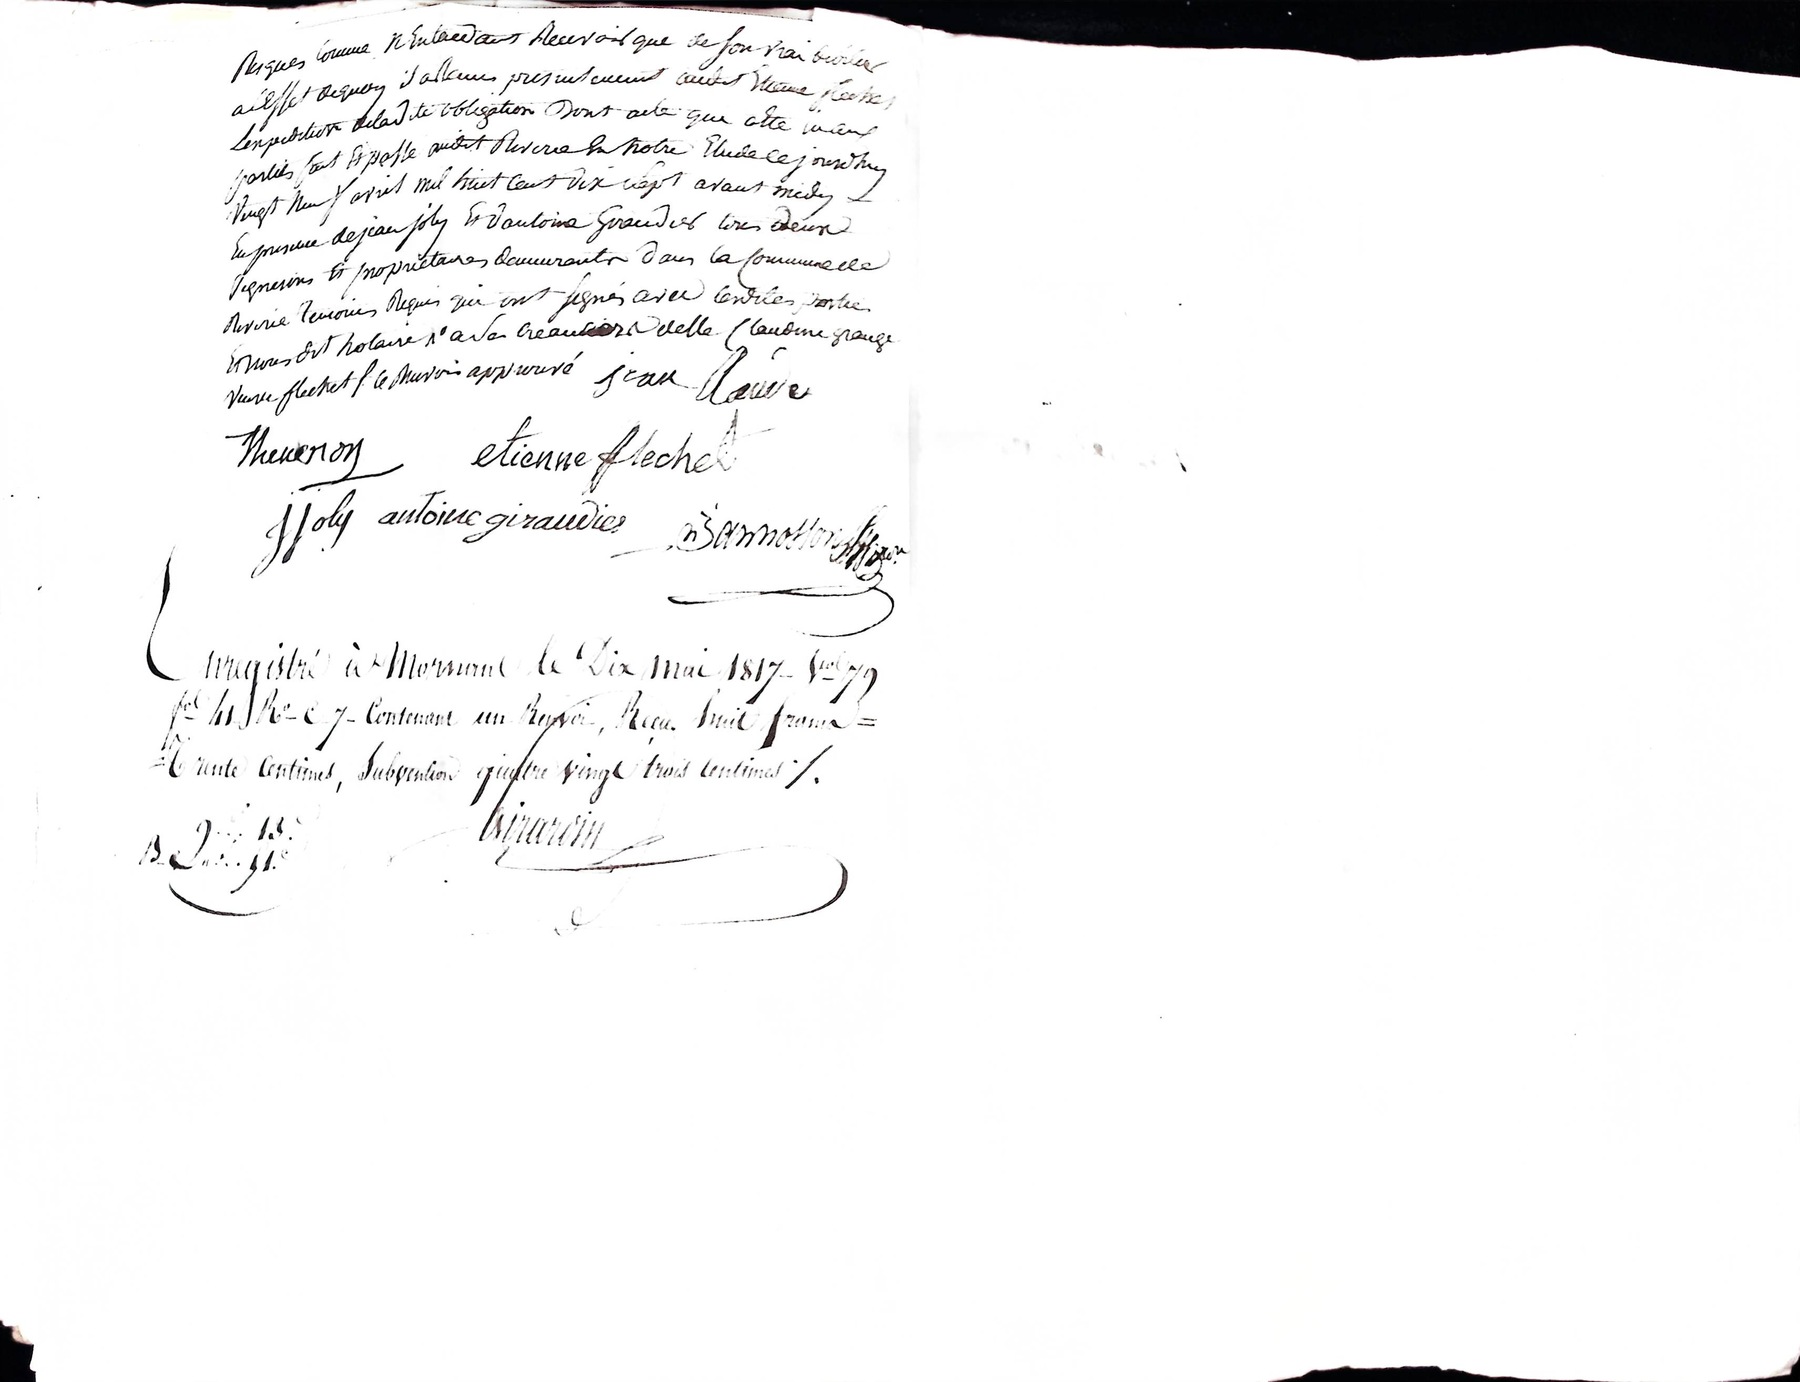 Risques comme n'Entendant Recevoir que de son vrai
a l'Effet dequoy il a Remis presentement audit Etienne flechet
L'expedition deladite obligation Dont acte que cette
parties fait Et passé audit Riverie En notre Etude cejourdhuy
vingt neuf avril mil huit cent dix sept avant midy
En presence de jean joly Et d'antoine Giraudier tous deux
vignerons Et proprietaires demeurants Dans la Commune de
Riverie Temoins Requis qui ont signés avec lesdites parties
Et nous dit notaire a la creanciere delle Claudine grange
veuve flechet le Renvoi approuvé jean Claude
Thevenon etienne flechet
jjoly antoine giraudier
Enregistré à Mornant le Dix mai 1817 Vol 79
fol 41 Ro C 7 Contenant un Renvoi, Reçu huit francs
Trente Centimes, Subvention quatre vingt trois Centimes /.
9 13
Girardin